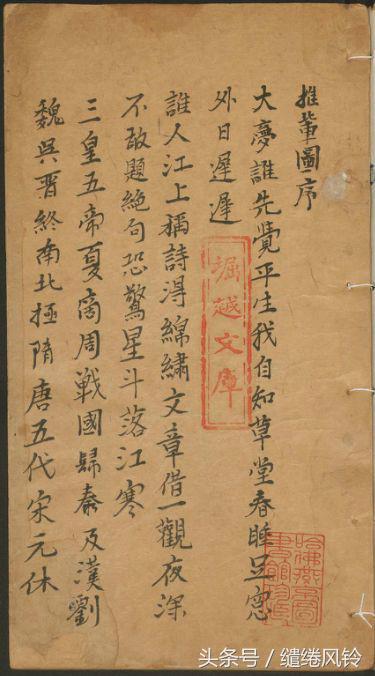 推輩圖序
大夢誰先覺平生我自知草堂春睡足窓
外日遲遲
誰人江上稱詩淂綿繡文章借一觀夜深
不敢題絶句恐驚星斗落江寒
三皇五帝夏商周戰國歸秦及漢劉
魏吳晋終南北極隋唐五代宋元休
堀越文庫
哈佛燕京圖
書館
头条号/缱绻风铃